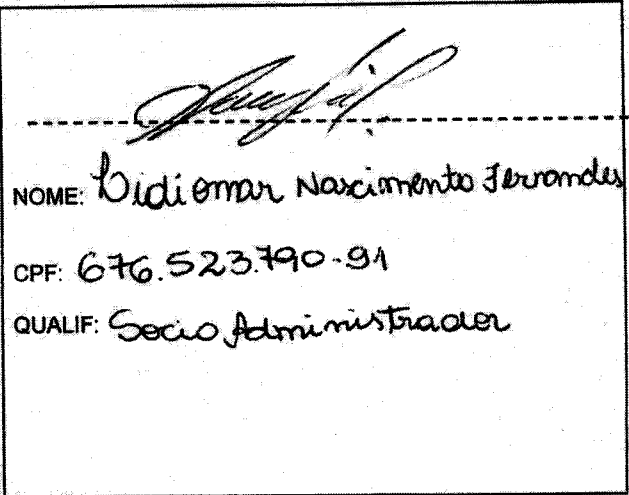 NOME: Didiomar Nascimento Fernandes
CPF: 676.523.790-91
QUALIF: Socio Administrador